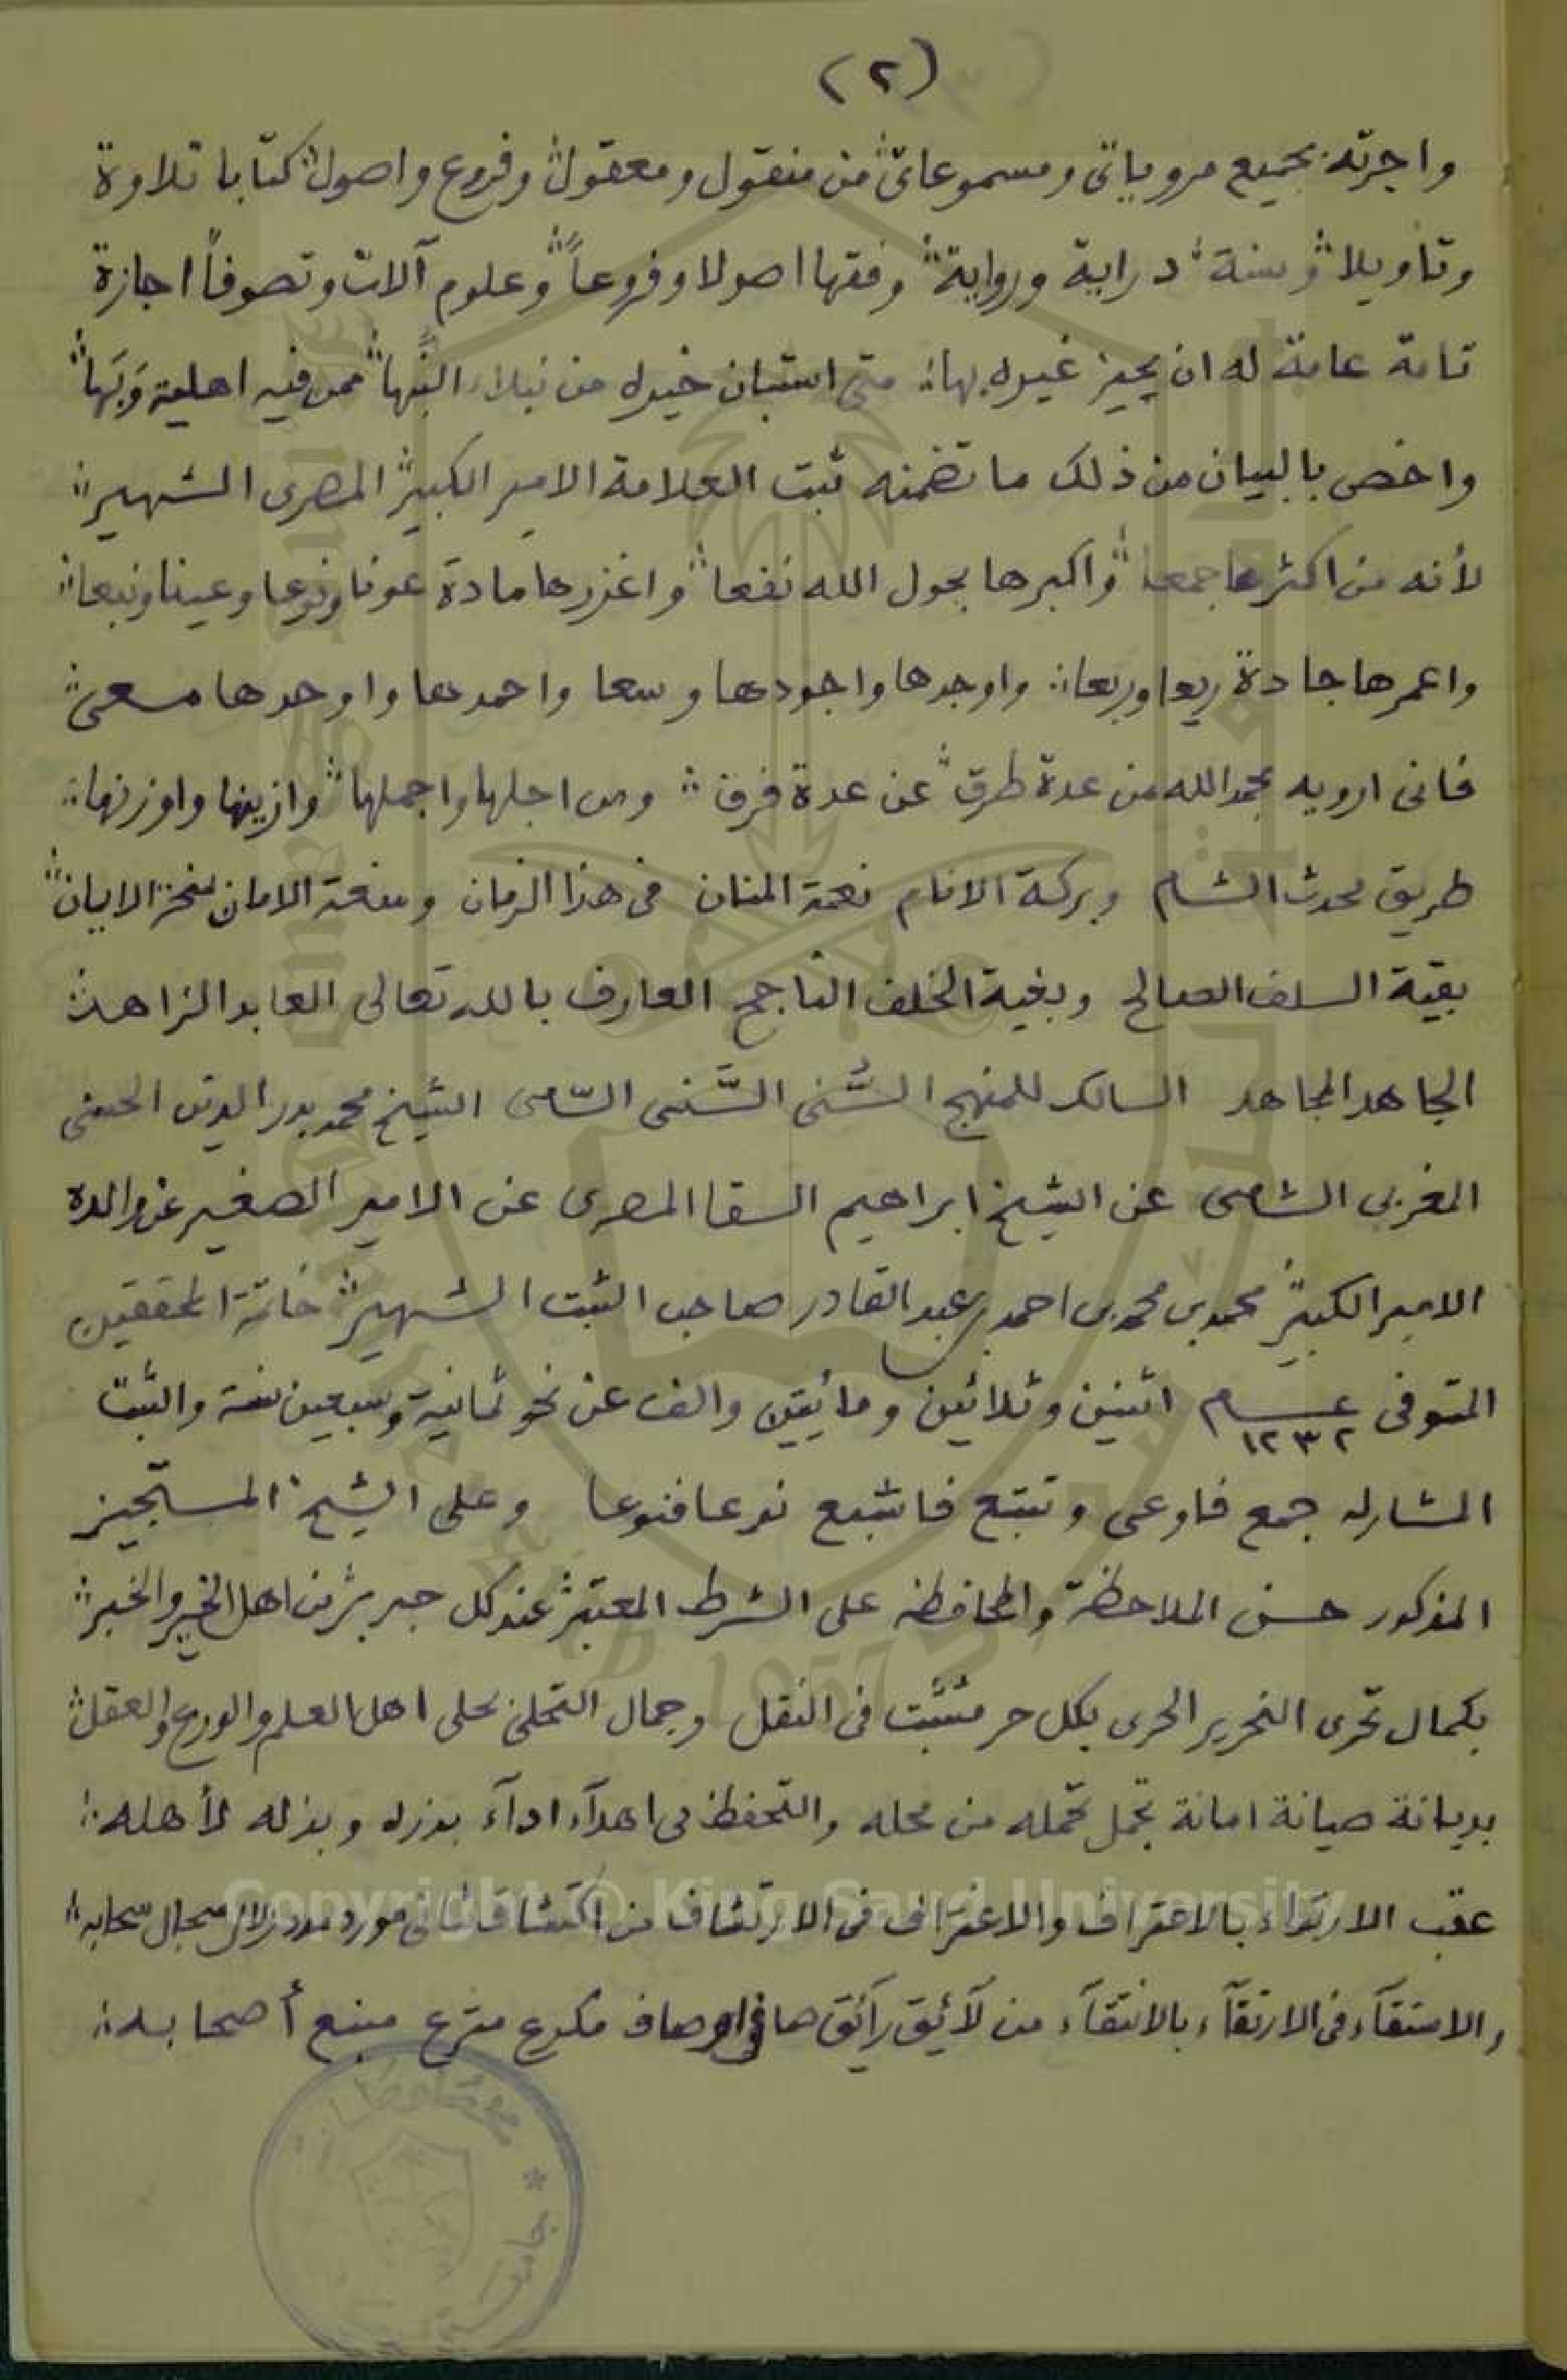 (٢)
واجزته بجميع مروياتى ومسموعاتى من منقول ومعقول وفروع واصول كتابا تلاوة
وتأويلا وسنة دراية ورواية وفقها اصولا وفروعاً وعلوم آلات وتصوفاً اجازة
تامة عامة له ان يجيز غيره بها متى استبان خيره من نبلاء النُّبها ممن فيه اهلية وَبَها
واخص بالبيان من ذلك ما تضمنه ثبت العلامة الامير الكبير المصرى الشهير
لأنه من اكثرها جمعا واكبرها بحول الله نفعا واغزرها مادة عونا ونوعا وعينا ونبعا
واعمرها جادة ريعا وربعا واوجدها واجودها وسعا واحمدها واوحدها مسعى
فانى ارويه بحمد الله من عدة طرق عن عدة فرق ومن اجلها واجملها وازينها واوزنها
طريق محدث الشام وبركة الانام نعمة المنان فى هذا الزمان ومنعة الامان الايمان
بقية السلف الصالح وبغية الخلف الناجح العارف بالله تعالى العابد الزاهد
الجاهد المجاهد السالك للمنهج السُّنى السَّنى السّامى الشيخ محمد بدر الدين الحسنى
المغربى الشامى عن الشيخ ابراهيم السقا المصرى عن الامير الصغير عن والده
الامير الكبير محمد بن محمد بن احمد بن عبد القادر صاحب الثبت الشهير خاتمة المحققين
المتوفى عام ١٢٣٢ اثنين وثلاثين ومائيتين والف عن نحو ثمانية وسبعين سنة والثبت
المشار له جمع فاوعى وتتبع فاشبع نوعا فنوعا وعلى الشيخ المستجيز
المذكور حسن الملاحظة والمحافظة على الشرط المعتبر عند كل حبر بر من اهل الخير والخبر
بكمال تحرى التحرير الحرى بكل حر مثبت فى النقل وجمال التحلى بحلى اهل العلم والورع والعقل
بديانة صيانة امانة تحمل تحمله من محله والتحفظ فى اهدآء ادآء بذره وبذله لأهله
عقب الارتواء بالاعتراف والاغتراف فى الارتشاف من مورد مدد زلال سجال سحابه
والاستقآء فى الارتقآء بالانتقآء من لآئيق رآئق صافى اوصاف مكرع مترع منبع أصحابه
Copyright © King Saud University